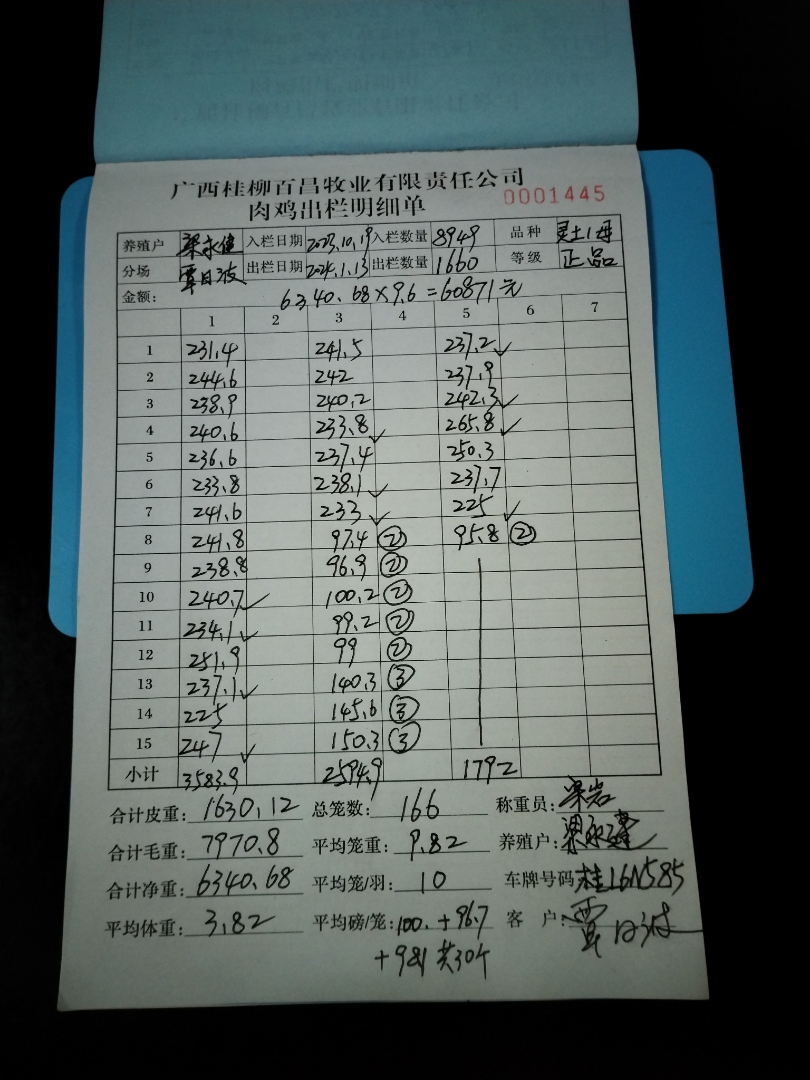 广西桂柳百昌牧业有限责任公司
肉鸡出栏明细单 0001445
养殖户 梁永健 入栏日期 2023.10.19 入栏数量 8949 品种 灵土1母
分场 覃日波 出栏日期 2024.1.13 出栏数量 1660 等级 正品
金额: 6340.68×9.6=60871元
1 2 3 4 5 6 7
1 231.4 241.5 237.2✓
2 244.6 242 237.9
3 238.9 240.2 242.3✓
4 240.6 233.8✓ 265.8✓
5 236.6 237.4 250.3
6 233.8 238.1✓ 237.7
7 241.6 233✓ 225✓
8 241.8 97.4 ② 95.8 ②
9 238.8 96.9 ②
10 240.7✓ 100.2 ②
11 234.1✓ 99.2 ②
12 251.9 99 ②
13 237.1✓ 140.3 ③
14 225 145.6 ③
15 247✓ 150.3 ③
小计 3583.9 2594.9 1792
合计皮重: 1630.12 总笼数: 166 称重员: 梁岩
合计毛重: 7970.8 平均笼重: 9.82 养殖户: 梁永健
合计净重: 6340.68 平均笼/羽: 10 车牌号码: 桂16N585
平均体重: 3.82 平均磅/笼: 100.+96.7 客户: 覃日波
+981 共30个